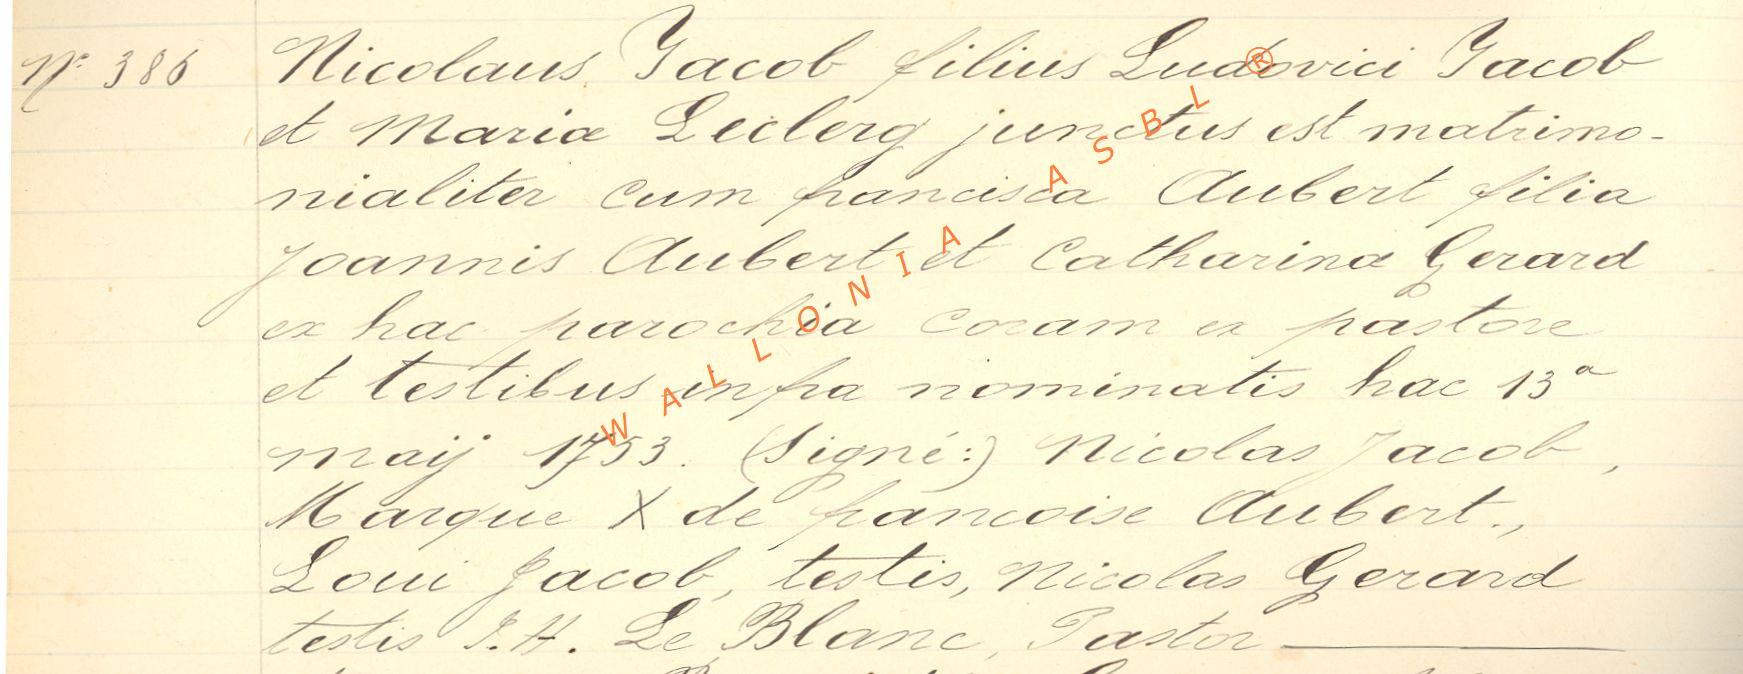 N° 386 Nicolaus Jacob filius Ludovici Jacob
et Mariæ Leclerq junctus est matrimo-
nialiter cum francisca Aubert filia
Joannis Aubert et Catharinæ Gerard
ex hac parochia coram ex pastore
et testibus infra nominatis hac 13ª
maij 1753. (Signé:) Nicolas Jacob,
Marque X de francoise Aubert.,
Loui Jacob, testis, Nicolas Gerard
testis J. H. Le Blanc, Pastor
WALLONIA ASBL ®